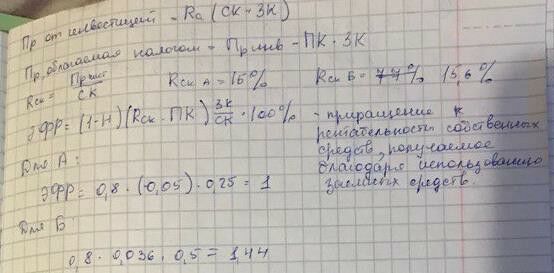 Пр от инвестиций = Ra (СК + ЗК)
Пр, облагаемая налогом = Пр инв - ПК · ЗК
Rск = Пр чист / СК Rск А = 15% Rск Б = 15,6%
ЭФР = (1-Н)(Rск - ПК) ЗК/СК · 100% - приращение к
рентабельности собственных
средств, получаемое
благодаря использованию
заемных средств.
Для А:
ЭФР = 0,8 · (0,05) · 0,25 = 1
Для Б
0,8 · 0,036 · 0,5 = 1,44